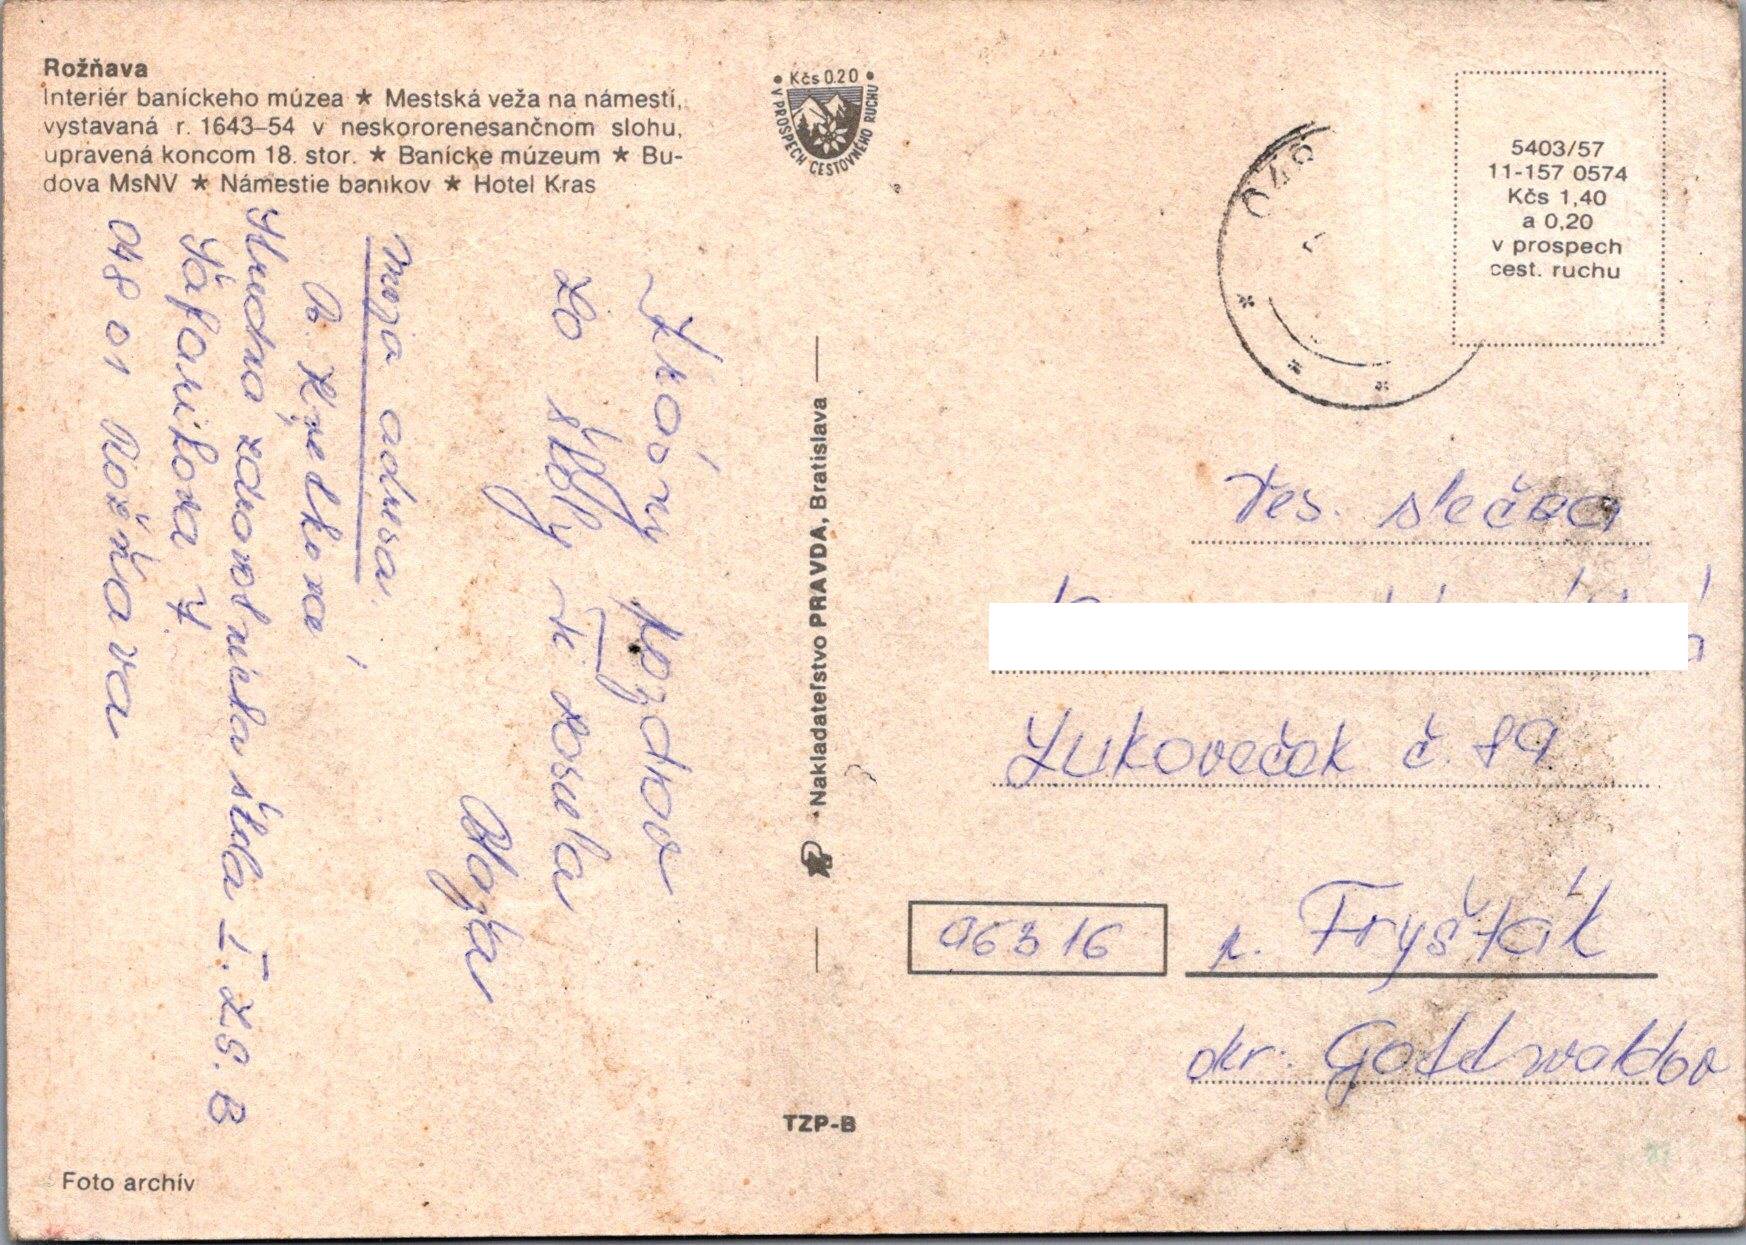 Rožňava
Interiér baníckeho múzea ★ Mestská veža na námestí,
vystavaná r. 1643–54 v neskororenesančnom slohu,
upravená koncom 18. stor. ★ Banícke múzeum ★ Bu-
dova MsNV ★ Námestie baníkov ★ Hotel Kras
• Kčs 0.20 •
V PROSPECH CESTOVNÉHO RUCHU
5403/57
11-157 0574
Kčs 1,40
a 0,20
v prospech
cest. ruchu
048
pozdrav
zo školy ti posiela
moja adresa.
Stredná zdravotnícka škola I. ZS. B
Šafárikova
048 01 Rožňava
Nakladateľstvo PRAVDA, Bratislava
Ves. slečna
Lukoveček č. 89
76316
p. Fryšták
okr. Gottwaldov
TZP-B
Foto archív